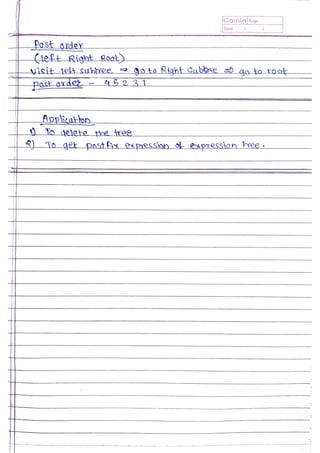 Camlin Page
Date / /
Post order
(left Right Root)
visit left subtree ⇒ go to Right Subtree ⇒ go to root
post order - 4 5 2 3 1
Application
1) To delete the tree
2) To get postfix expression of expression tree.